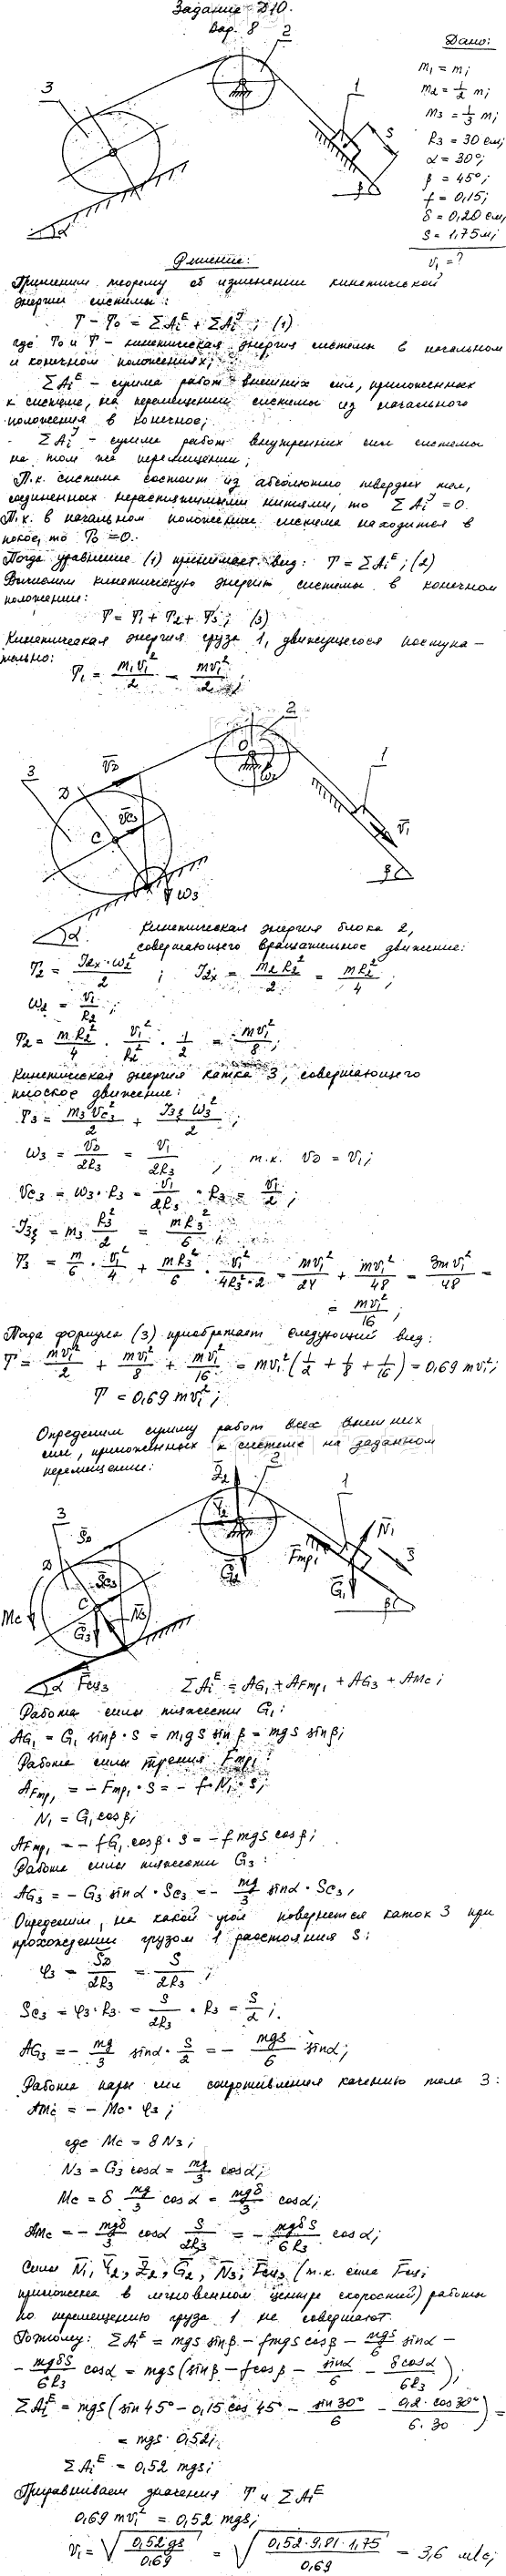 Задание Д10.
Вар. 8
Дано:
m₁ = m;
m₂ = 1/2 m;
m₃ = 1/3 m;
R₃ = 30 см;
α = 30°;
β = 45°;
f = 0,15;
δ = 0,20 см;
S = 1,75 м;
V₁ = ?
3
2
1
S
α
β
Решение:
Применим теорему об изменении кинетической
энергии системы:
T − T₀ = ΣAᵢᴱ + ΣAᵢᴶ ; (1)
где T₀ и T – кинетическая энергия системы в начальном
и конечном положениях;
ΣAᵢᴱ – сумма работ внешних сил, приложенных
к системе, на перемещении системы из начального
положения в конечное;
ΣAᵢᴶ – сумма работ внутренних сил системы
на том же перемещении;
Т.к. система состоит из абсолютно твердых тел,
соединенных нерастяжимыми нитями, то ΣAᵢᴶ = 0.
Т.к. в начальном положении система находится в
покое, то T₀ = 0.
Тогда уравнение (1) принимает вид: T = ΣAᵢᴱ ; (2)
Вычислим кинетическую энергию системы в конечном
положении:
T = T₁ + T₂ + T₃ ; (3)
Кинетическая энергия груза 1, движущегося поступа-
тельно:
T₁ = m₁V₁²/2 = mV₁²/2 ;
3
D
V̄D
C
V̄C₃
ω₃
α
2
O
ω₂
1
V̄₁
β
Кинетическая энергия блока 2,
совершающего вращательное движение:
T₂ = J₂ₓ·ω₂²/2 ; J₂ₓ = m₂R₂²/2 = mR₂²/4 ;
ω₂ = V₁/R₂ ;
T₂ = mR₂²/4 · V₁²/R₂² · 1/2 = mV₁²/8 ;
Кинетическая энергия катка 3, совершающего
плоское движение:
T₃ = m₃VC₃²/2 + J₃ξ ω₃²/2 ;
ω₃ = VD/2R₃ = V₁/2R₃ , т.к. VD = V₁ ;
VC₃ = ω₃·R₃ = V₁/2R₃ · R₃ = V₁/2 ;
J₃ξ = m₃ R₃²/2 = mR₃²/6 ;
T₃ = m/6 · V₁²/4 + mR₃²/6 · V₁²/4R₃²·2 = mV₁²/24 + mV₁²/48 = 3mV₁²/48 =
= mV₁²/16 ;
Тогда формула (3) приобретает следующий вид:
T = mV₁²/2 + mV₁²/8 + mV₁²/16 = mV₁²(1/2 + 1/8 + 1/16) = 0,69 mV₁² ;
T = 0,69 mV₁² ;
Определим сумму работ всех внешних
сил, приложенных к системе на заданном
перемещении:
3
D
S̄D
Mc
C
S̄C₃
Ḡ₃
N̄₃
F̄сц₃
α
Z̄₂
Ȳ₂
Ḡ₂
2
1
F̄тр₁
N̄₁
S̄
Ḡ₁
β
ΣAᵢᴱ = AG₁ + AFтр₁ + AG₃ + AMc ;
Работа силы тяжести G₁:
AG₁ = G₁ sinβ · S = m₁gS sinβ = mgS sinβ;
Работа силы трения Fтр₁:
AFтр₁ = − Fтр₁ · S = − f·N₁·S;
N₁ = G₁cosβ;
AFтр₁ = − fG₁ cosβ · S = − fmgS cosβ;
Работа силы тяжести G₃:
AG₃ = − G₃ sinα · SC₃ = − mg/3 sinα · SC₃ ,
Определим, на какой угол повернется каток 3 при
прохождении грузом 1 расстояния S:
φ₃ = SD/2R₃ = S/2R₃ ;
SC₃ = φ₃·R₃ = S/2R₃ · R₃ = S/2 ;
AG₃ = − mg/3 sinα · S/2 = − mgS/6 sinα;
Работа пары сил сопротивления качению тела 3:
AMc = − Mc · φ₃ ;
где Mc = δN₃ ;
N₃ = G₃ cosα = mg/3 cosα;
Mc = δ mg/3 cosα = mgδ/3 cosα;
AMc = − mgδ/3 cosα S/2R₃ = − mgδS/6R₃ cosα;
Силы N̄₁, Ȳ₂, Z̄₂, Ḡ₂, N̄₃, F̄сц₃ (т.к. сила F̄сц
приложена в мгновенном центре скоростей) работы
по перемещению груза 1 не совершают.
Поэтому: ΣAᵢᴱ = mgS sinβ − fmgS cosβ − mgS/6 sinα −
− mgδS/6R₃ cosα = mgS(sinβ − fcosβ − sinα/6 − δcosα/6R₃);
ΣAᵢᴱ = mgS(sin45° − 0,15cos45° − sin30°/6 − 0,2·cos30°/6·30) =
= mgS · 0,52;
ΣAᵢᴱ = 0,52 mgS;
Приравниваем значения T и ΣAᵢᴱ
0,69 mV₁² = 0,52 mgS;
V₁ = √(0,52gS/0,69) = √(0,52·9,81·1,75/0,69) = 3,6 м/с;